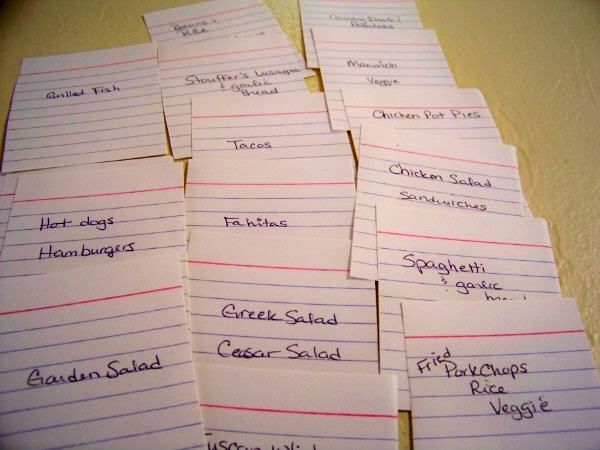 Beans &
Rice
Country Steak &
Potatoes
Grilled Fish
Stouffer's Lasagna
& garlic
Bread
Manwich
Veggie
Tacos
Chicken Pot Pies
Chicken Salad
Sandwiches
Hot dogs
Hamburgers
Fahitas
Spaghetti
& garlic
Greek Salad
Ceasar Salad
Garden Salad
Fried
Pork Chops
Rice
Veggie